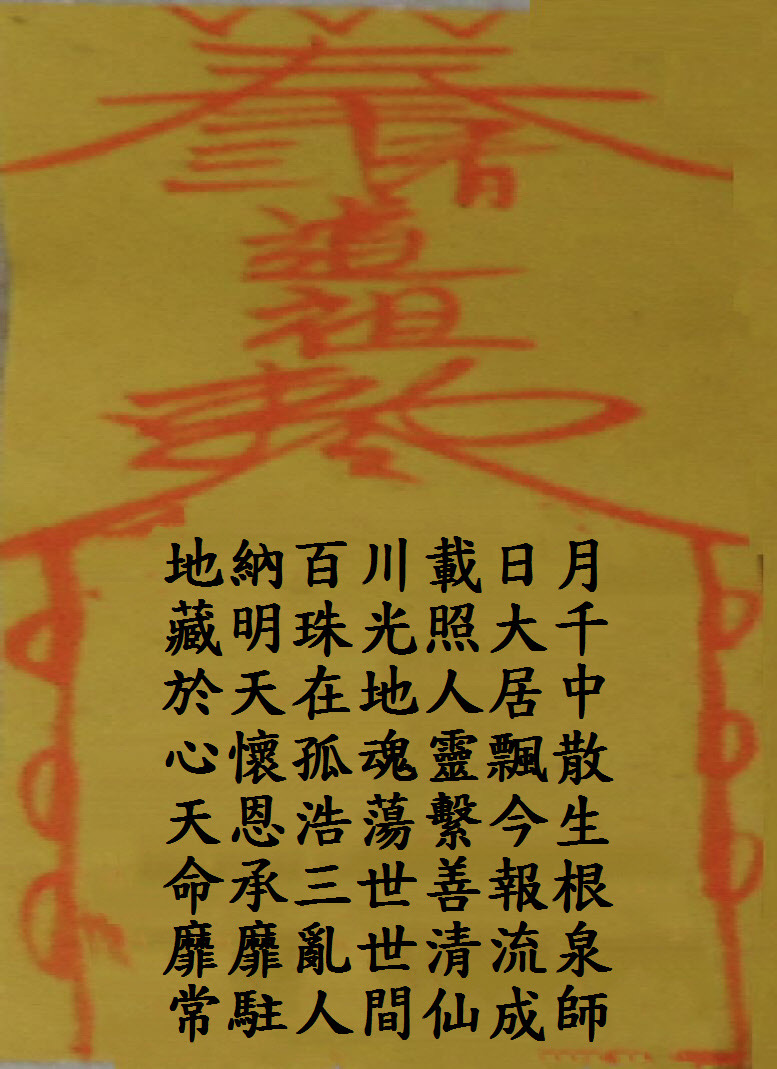 道祖
地納百川載日月
藏明珠光照大千
於天在地人居中
心懷孤魂靈飄散
天恩浩蕩繫今生
命承三世善報根
靡靡亂世清流泉
常駐人間仙成師